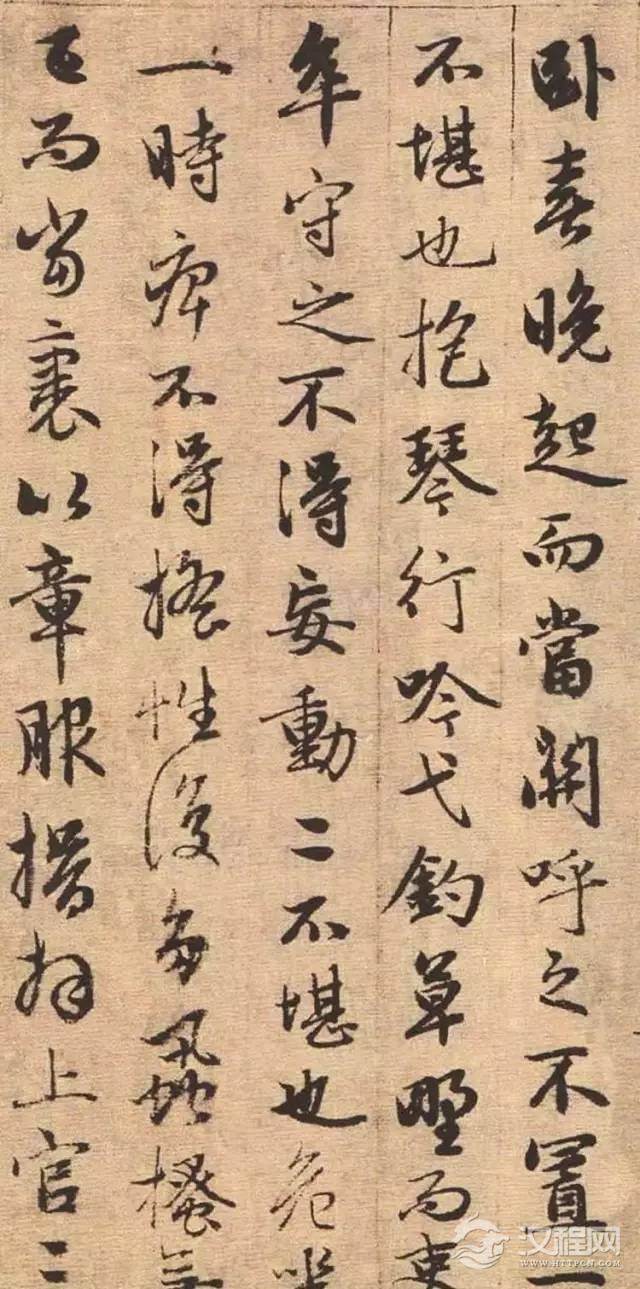 卧喜晚起而當關呼之不置一
不堪也抱琴行吟弋釣草野而吏
卒守之不得妄動二不堪也危坐
一時痺不得搖性復多蝨搔
已而當裹以章服揖拜上官
汉程网
WWW.HTTPCN.COM